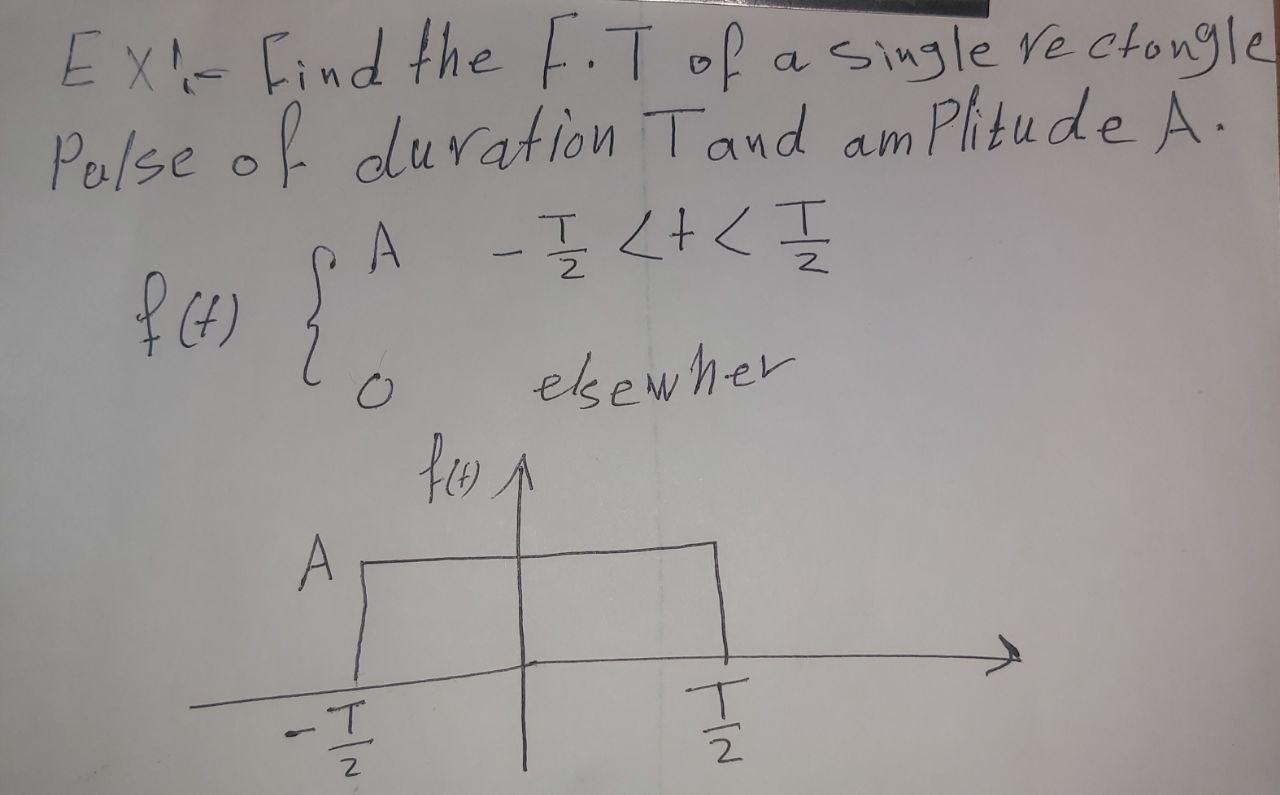 EX:- Find the F.T of a single rectongle
Pulse of duration T and amPlitude A.
f(t) { A -T/2 < t < T/2
0 elsewher
f(t)
A
-T/2 T/2